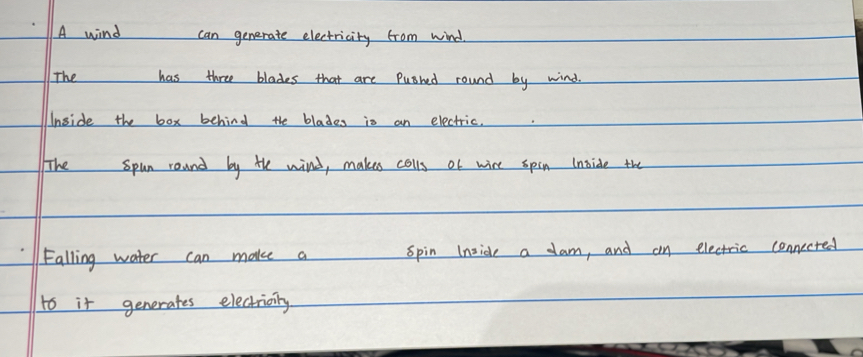 A wind can generate electricity from wind.
The has three blades that are Pushed round by wind.
Inside the box behind the blades is an electric.
The spun round by the wind, makes coils of wire spin Inside the
Falling water can make a spin Inside a dam, and an electric connected
to it generates electricity.